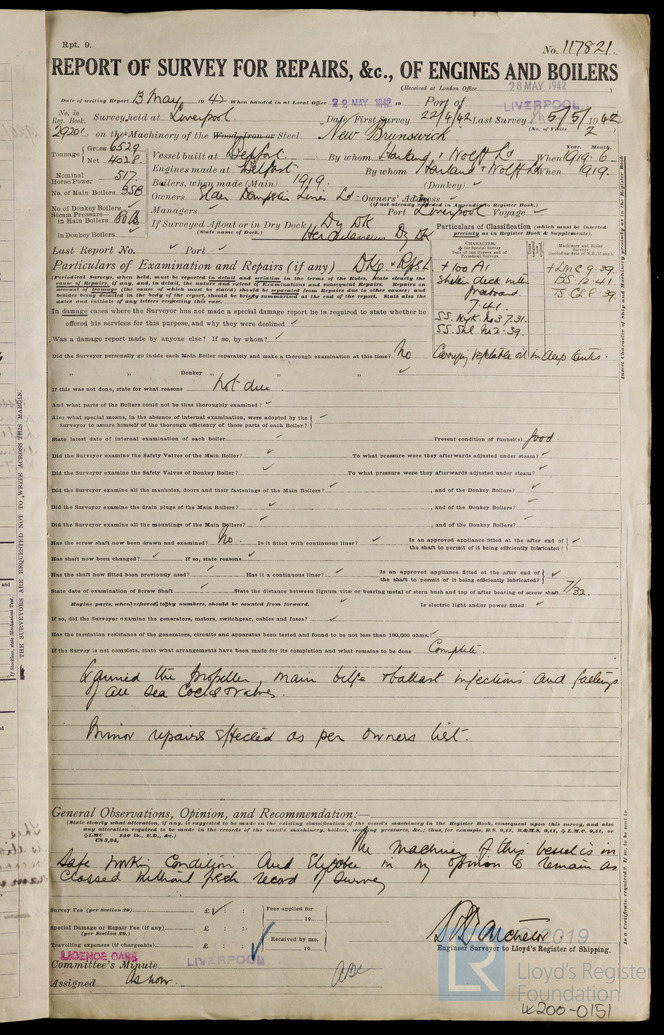 Rpt. 9.
No. 117821.
REPORT OF SURVEY FOR REPAIRS, &c., OF ENGINES AND BOILERS
(Received at London Office 28 MAY 1942 )
Date of writing Report 13 May 1942 When handed in at Local Office 22 MAY 1942 19 Port of LIVERPOOL
No. in Reg. Book. Survey held at Liverpool Date, First Survey 22/4/42 Last Survey 5/5/1942
29201 on the Machinery of the Wood, Iron or Steel New Brunswick (No. of Visits 2
Tonnage Gross 6529
Net 4028
Vessel built at Belfast By whom Harland & Wolff Ld When 1919. 6
Engines made at Belfast By whom Harland & Wolff Ld When 1919.
Nominal Horse Power 517.
Boilers, when made (Main) 1919. (Donkey) ✓
No. of Main Boilers 3SB
Owners Elder Dempster Lines Ld Owners' Address
(if not already recorded in Appendix to Register Book.)
No. of Donkey Boilers ✓
Managers ✓ Port Liverpool Voyage ✓
Steam Pressure in Main Boilers
in Donkey Boilers ✓
If Surveyed Afloat or in Dry Dock Dry Dk
(State name of Dock.) Herculaneum Dry Dk
Particulars of Classification (which must be inserted precisely as in Register Book & Supplements).
Last Report No. ✓ Port ✓
Particulars of Examination and Repairs (if any) Dkg. & Rprs.
+ 100 A1
Shelter deck with freeboard
7.41.
SS. Nwk. No 3 7.31.
+ LMC 9.39.
BS. 12.41
Carrying vegetable oil in deep tanks.
In damage cases where the Surveyor has not made a special damage report he is required to state whether he
offered his services for this purpose, and why they were declined ✓
Was a damage report made by anyone else? If so, by whom? ✓
Did the Surveyor personally go inside each Main Boiler separately and make a thorough examination at this time? No
" " Donkey " " " ✓
If this was not done, state for what reasons not due.
And what parts of the Boilers could not be thoroughly examined? ✓
Also what special means, in the absence of internal examination, were adopted by the
Surveyor to assure himself of the thorough efficiency of those parts of each Boiler? ✓
State latest date of internal examination of each boiler ✓ Present condition of funnel(s) good
Did the Surveyor examine the Safety Valves of the Main Boiler? ✓ To what pressure were they afterwards adjusted under steam? ✓
Did the Surveyor examine the Safety Valves of Donkey Boiler? ✓ To what pressure were they afterwards adjusted under steam? ✓
Did the Surveyor examine all the manholes, doors and their fastenings of the Main Boilers? ✓, and of the Donkey Boilers? ✓
Did the Surveyor examine the drain plugs of the Main Boilers? ✓, and of the Donkey Boilers? ✓
Did the Surveyor examine all the mountings of the Main Boilers? ✓, and of the Donkey Boilers? ✓
Has the screw shaft now been drawn and examined? No. Is it fitted with continuous liner? ✓ Is an approved appliance fitted at the after end of
the shaft to permit of it being efficiently lubricated? ✓
Has shaft now been changed? ✓ If so, state reasons ✓
Has the shaft now fitted been previously used? ✓ Has it a continuous liner? ✓ Is an approved appliance fitted at the after end of
the shaft to permit of it being efficiently lubricated? ✓
State date of examination of Screw Shaft ✓ State the distance between lignum vitæ or bearing metal of stern bush and top of after bearing of screw shaft 7/32.
Engine parts, when referred to by numbers, should be counted from forward. Is electric light and/or power fitted ✓
If so, did the Surveyor examine the generators, motors, switchgear, cables and fuses? ✓
Has the insulation resistance of the generators, circuits and apparatus been tested and found to be not less than 100,000 ohms. ✓
If the Survey is not complete, state what arrangements have been made for its completion and what remains to be done Complete.
Examined the Propeller, main bilge & ballast injections and fastenings
of all Sea Cocks & valves.
Minor repairs effected as per owners list.
General Observations, Opinion, and Recommendation:—
(State clearly what alteration, if any, is suggested to be made in the existing classification of the vessel's machinery in the Register Book, consequent upon this survey, and also
The machinery of this vessel is in
safe working condition and Eligible in my opinion to remain as
Classed without fresh record of survey
Survey Fee (per Section 29) £ ✓ : :
Fees applied for 19
Special Damage or Repair Fee (if any) £ : :
(per Section 29.)
Travelling expenses (if chargeable) £ : :
Received by me, 19
LICENCE CASE
LIVERPOOL
Committee's Minute
Assigned As now.
Engineer Surveyor to Lloyd's Register of Shipping.
THE SURVEYORS ARE REQUESTED NOT TO WRITE ACROSS THIS MARGIN.
2019
LR
Lloyd's Register
Foundation
LR200-0151